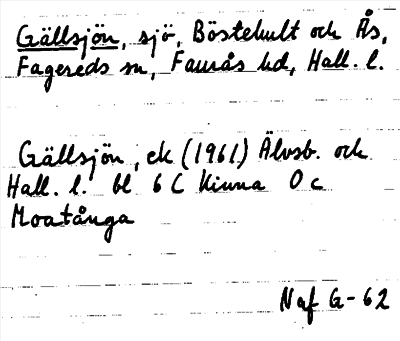 Gällsjön, sjö, Böstehult och Ås,
Fagereds sn, Faurås hd, Hall. l.
Gällsjön, ek (1961) Älvsb. och
Hall. l. bl 6 C Kinna 0 c
Moatånga
Naf G-62